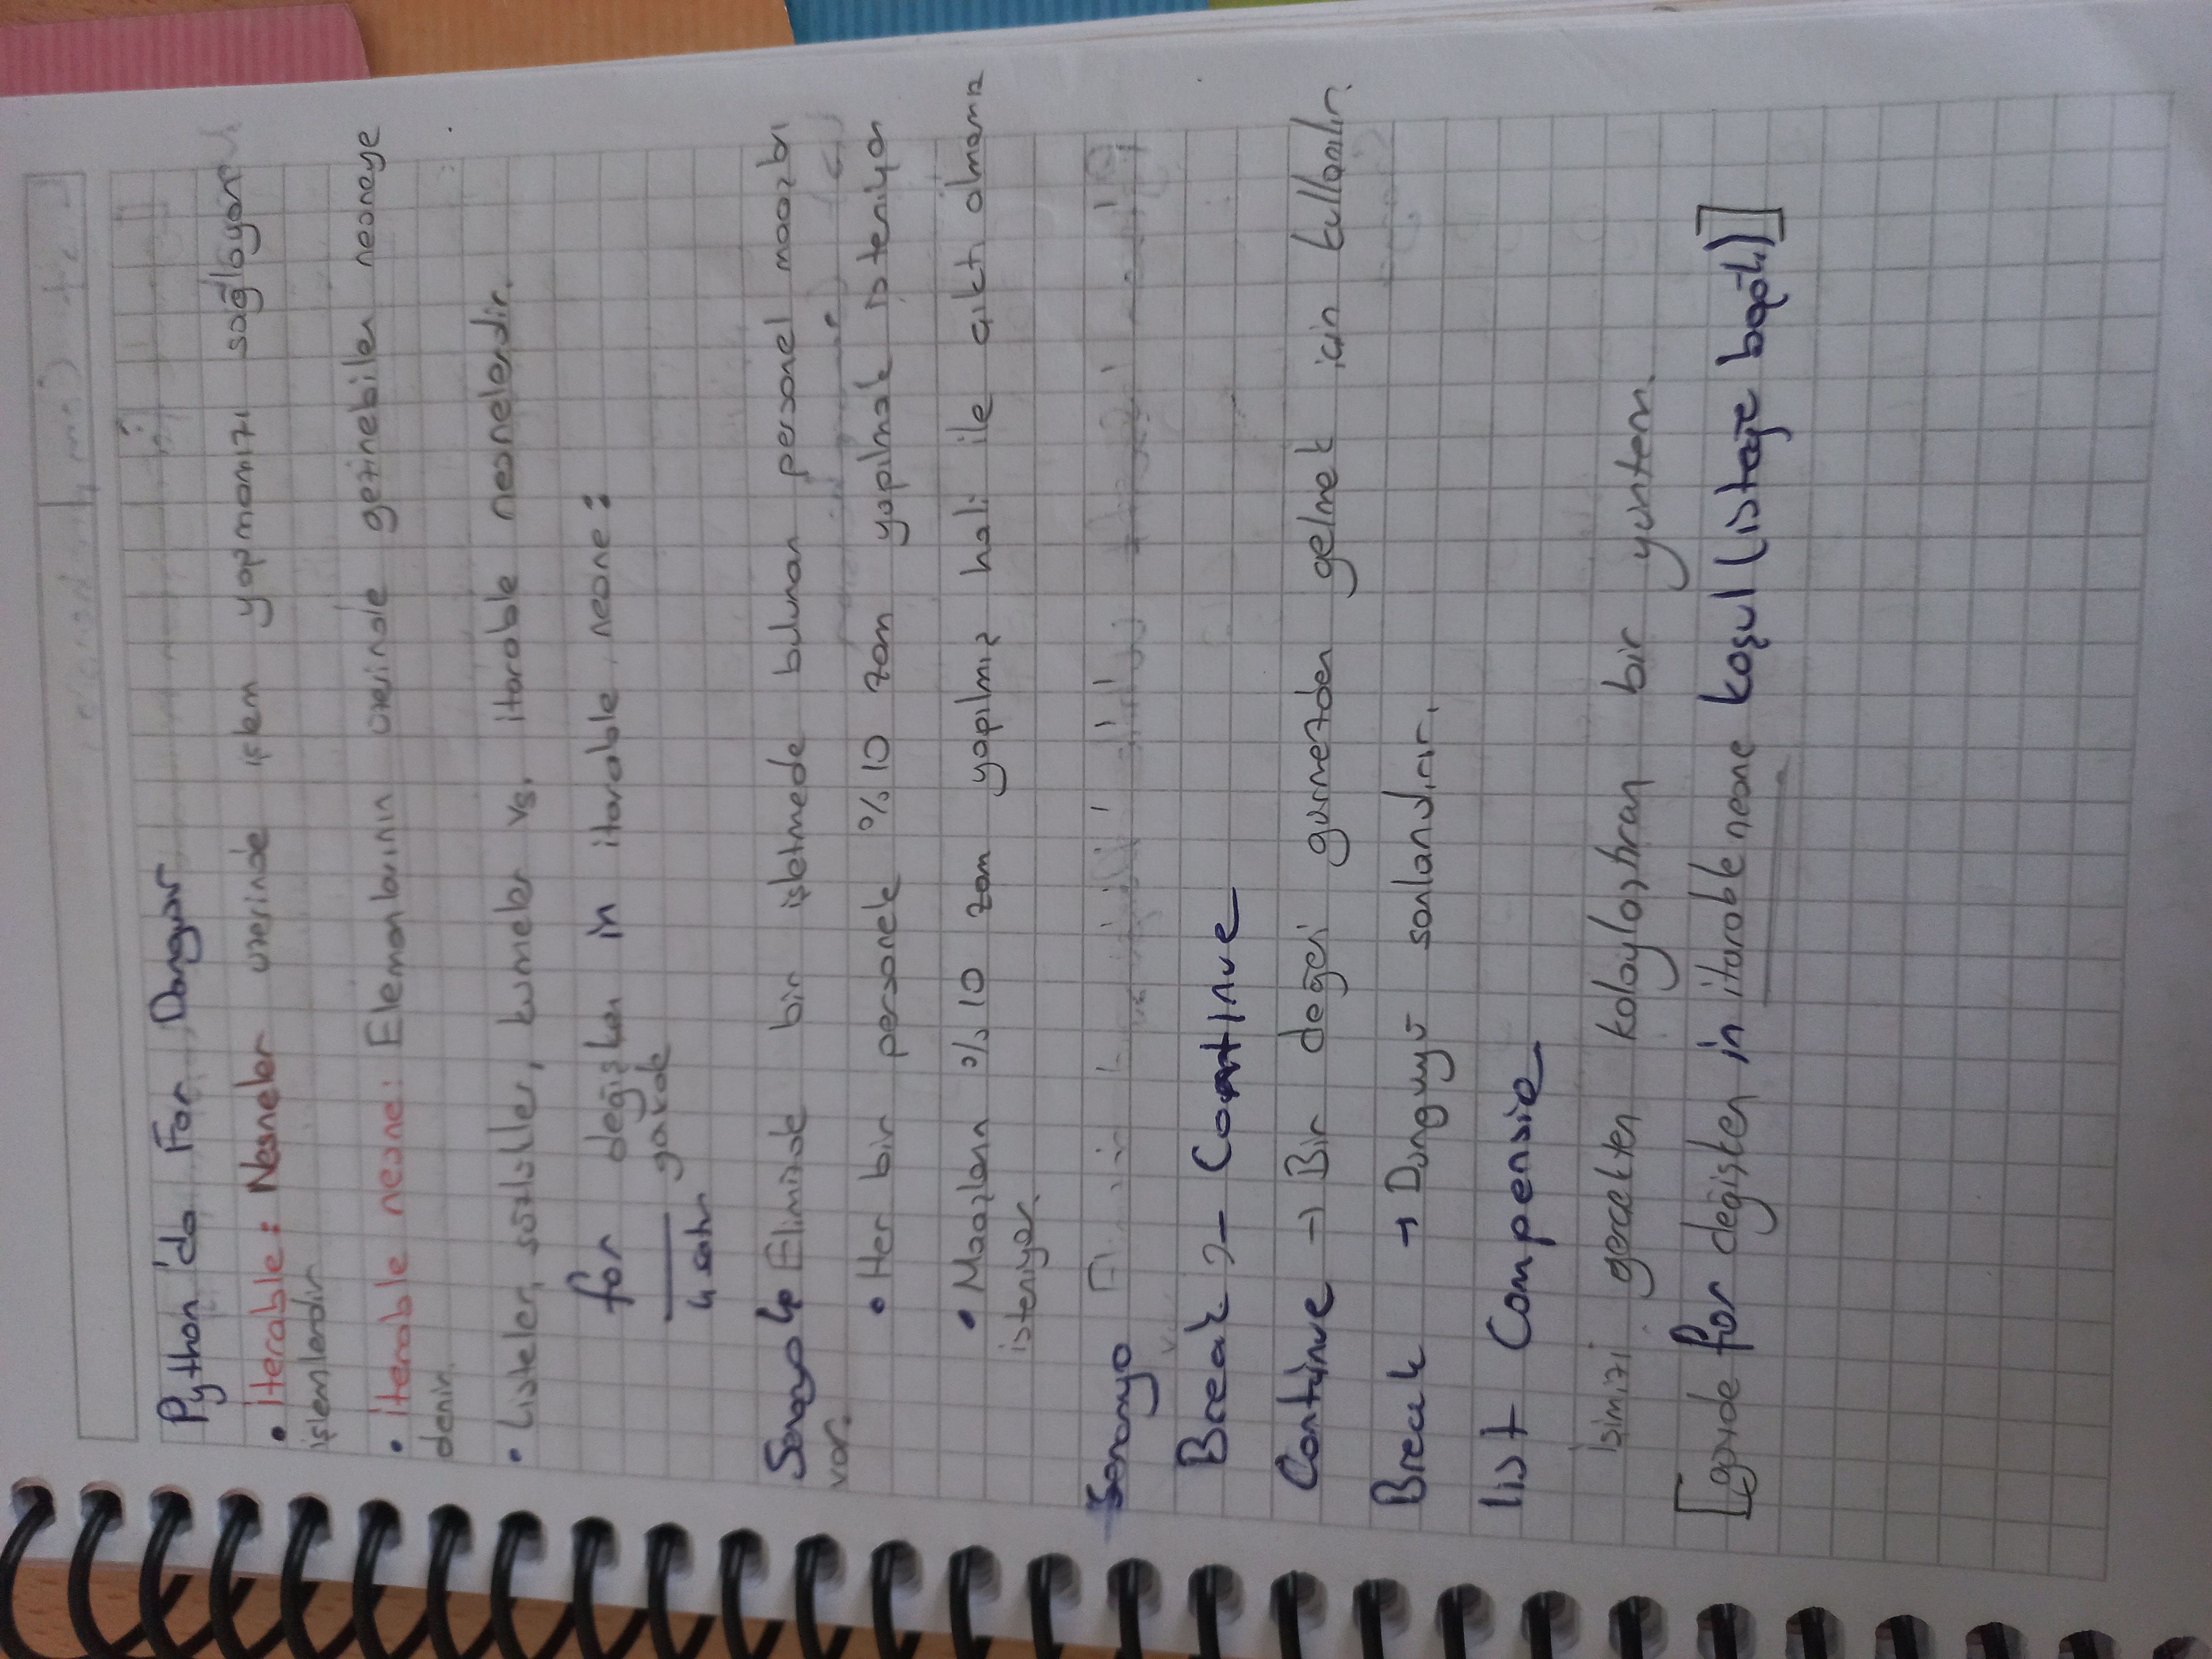 Python'da For Döngüsü
• iterable: Nesneler üzerinde işlem yapmamızı sağlayan
işlemlerdir
• iterable nesne: Elemanlarının üzerinde gezinebilen nesneye
denir.
• Listeler, sözlükler, kümeler vs. iterable nesnelerdir.
for değişken in iterable nesne:
gövde
4 satır
Senaryo Elimizde bir işletmede bulunan personel maaşları
var.
• Her bir personele %10 zam yapılmak isteniyor
• Maaşların %10 zam yapılmış hali ile çıktı alınması
isteniyor.
Senaryo
Break - Continue
Continue → Bir değeri görmezden gelmek için kullanılır.
Break → Döngüyü sonlandırır.
list Compensie
İşimizi gerçekten kolaylaştıran bir yöntem.
[gövde for değişken in iterable nesne koşul (isteğe bağlı)]